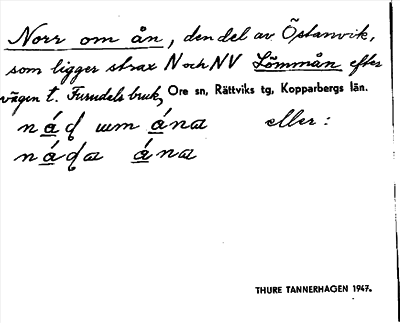 Norr om ån, den del av Östanvik,
som ligger strax N och NV Lömmån efter
vägen t. Furudals bruk, Ore sn, Rättviks tg, Kopparbergs län.
nád um ána eller:
náda ána
THURE TANNERHAGEN 1947.